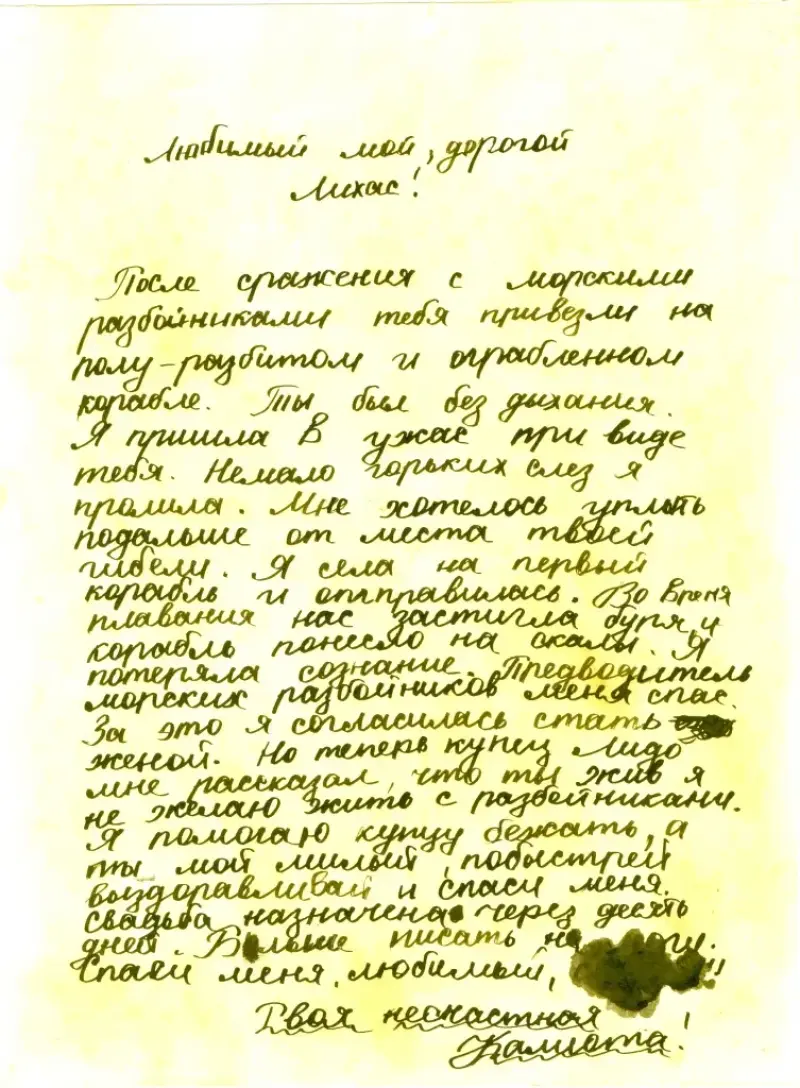 Любимый мой, дорогой
Лихас!
После сражения с морскими
разбойниками тебя привезли на
полу-разбитом и ограбленном
корабле. Ты был без дыхания.
Я пришла в ужас при виде
тебя. Немало горьких слез я
пролила. Мне хотелось уплыть
подальше от места твоей
гибели. Я села на первый
корабль и отправилась. Во время
плавания нас застигла буря и
корабль понесло на скалы. Я
потеряла сознание. Предводитель
морских разбойников меня спас.
За это я согласилась стать
женой. Но теперь купец Лидо
мне рассказал, что ты жив я
не желаю жить с разбойниками.
Я помогаю купцу бежать, а
ты мой милый, побыстрей
выздоравливай и спаси меня.
Свадьба назначена через десять
дней. Больше писать
Спаси меня, любимый,
Твоя несчастная
Калиота!